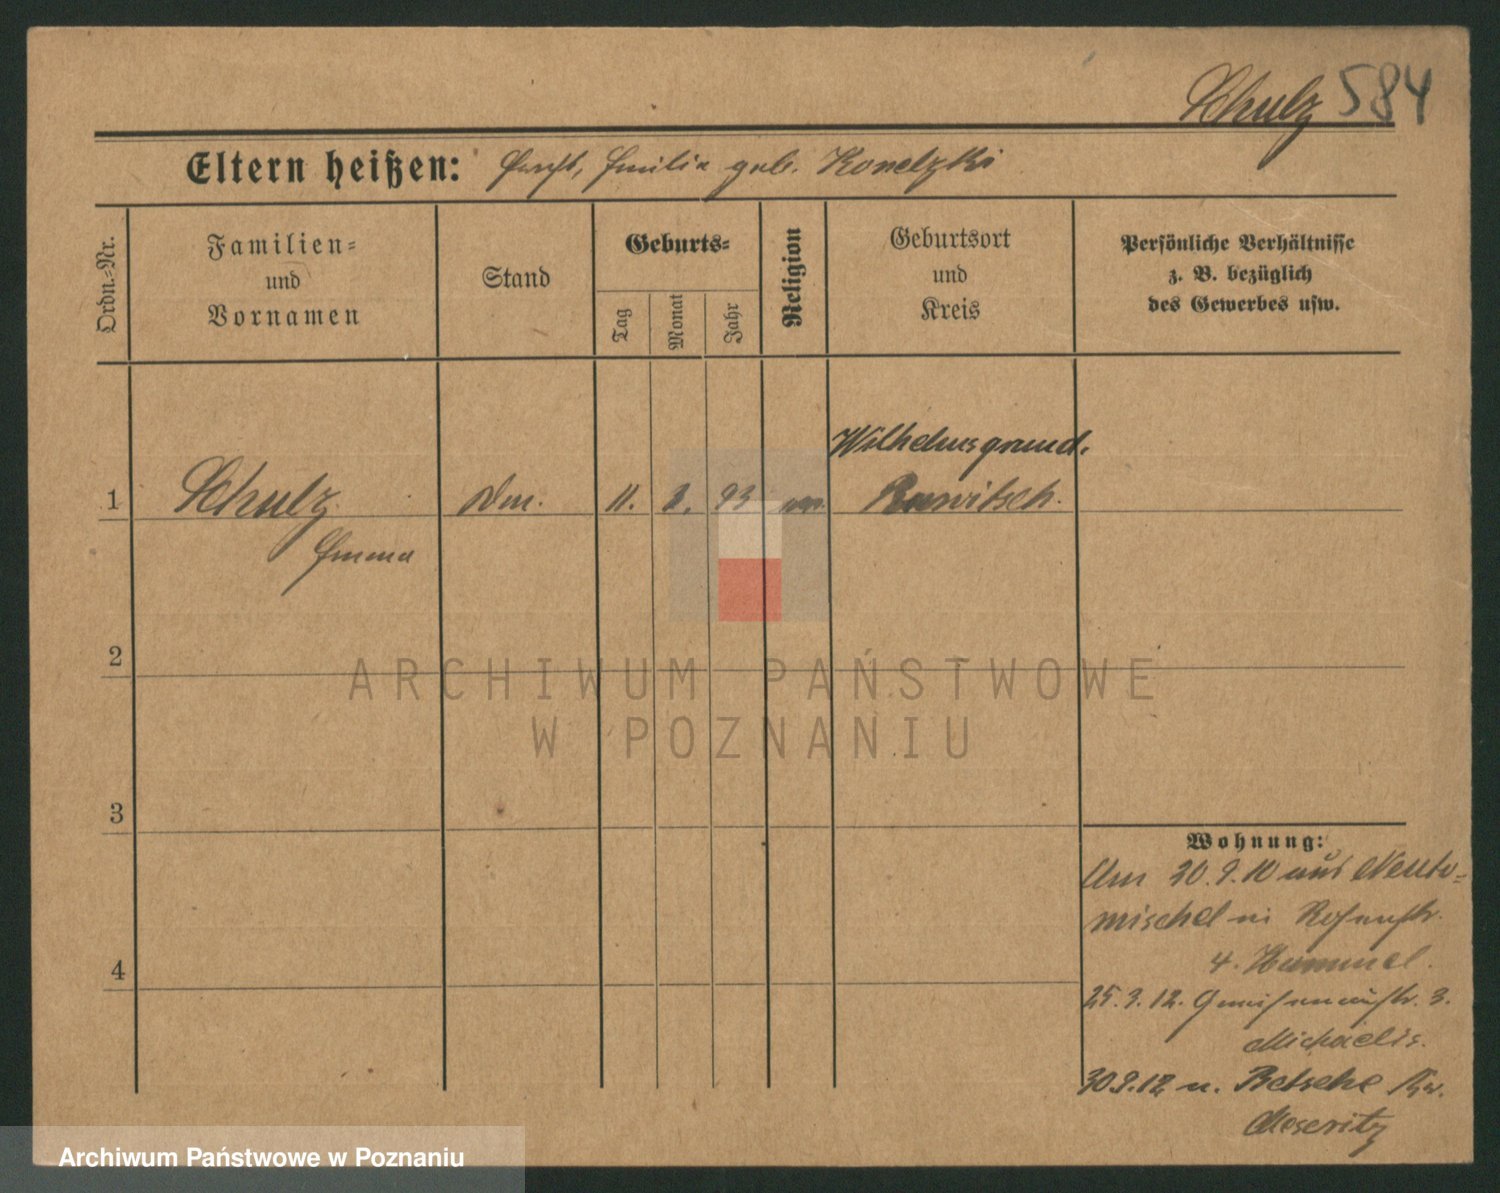 Schulz 584
Eltern heißen: Emilia geb. Konetzki
Ordn.=Nr.
Familien=
und
Vornamen
Stand
Geburts=
Tag
Monat
Jahr
Religion
Geburtsort
und
Kreis
Persönliche Verhältnisse
z. B. bezüglich
des Gewerbes usw.
Wilhelmsgrund.
1 Schulz 11. 2. 93 Rawitsch.
Emma
2
3
4
Wohnung:
Am 20.9.10 aus Neuto=
mischel in Rosenstr.
4. Hummel.
25.3.12. Gneisenaustr. 3.
Michaelis.
30.9.12 n. Betsche Kr.
Meseritz
ARCHIWUM PAŃSTWOWE
W POZNANIU
Archiwum Państwowe w Poznaniu